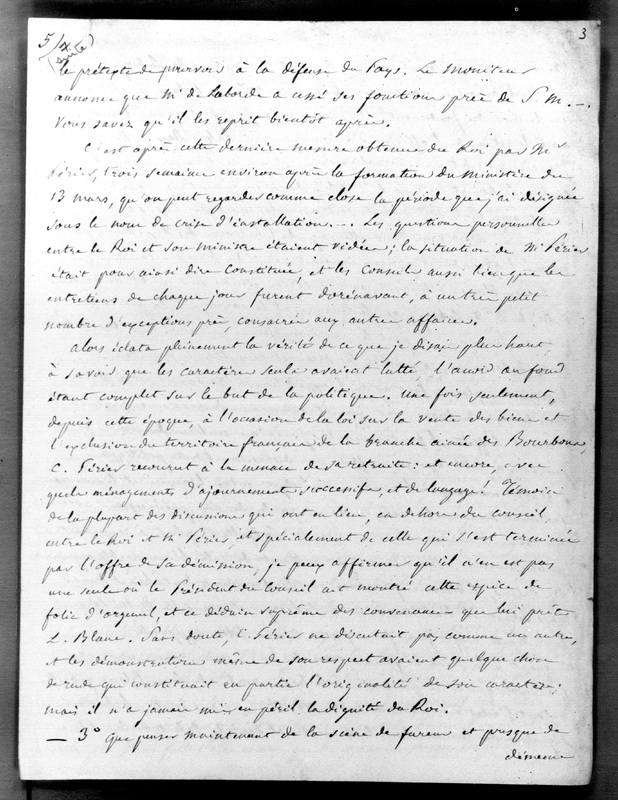 5/4 3
(suite)
le prétexte de pourvoir à la défense du Pays. Le moniteur
annonce que Mr de Laborde a cessé ses fonctions près de S. M. –.
Vous savez qu'il les reprit bientôt après.
C'est après cette dernière mesure obtenue du Roi par Mr
Périer, trois semaines environ après la formation du ministère du
13 mars, qu'on peut regarder comme close la période que j'ai désignée
sous le nom de crise d'installation. –. Les questions personnelles
entre le Roi et son ministre étaient vidées; la situation de Mr Périer
était pour ainsi dire constituée, et les conseils aussi bien que les
entretiens de chaque jour furent dorénavant, à un très petit
nombre d'exceptions près, consacrés aux autres affaires.
Alors éclata pleinement la vérité de ce que je disais plus haut
à savoir que les caractères seuls avaient lutté, l'accord au fond
étant complet sur le but de la politique. Une fois seulement,
depuis cette époque, à l'occasion de la loi sur la vente des biens et
l'exclusion du territoire français de la branche ainée des Bourbons,
C. Périer recourut à la menace de sa retraite: et encore, avec
quels ménagements d'ajournements successifs, et de langage! Témoin
de la plupart des discussions qui ont eu lieu, en dehors du conseil
entre le Roi et Mr Périer, et spécialement de celle qui s'est terminée
par l'offre de sa démission, je peux affirmer qu'il n'en est pas
une seule où le Président du Conseil ait montré cette espèce de
folie d'orgueil, et ce dédain suprême des convenances que lui prête
L. Blanc. Sans doute, C. Périer ne discutait pas comme un autre,
et les démonstrations même de son respect avaient quelque chose
de rude qui constituait en partie l'originalité de son caractère;
mais il n'a jamais mis en péril la dignité du Roi.
— 3° Que penser maintenant de la scène de fureur et presque de
démence